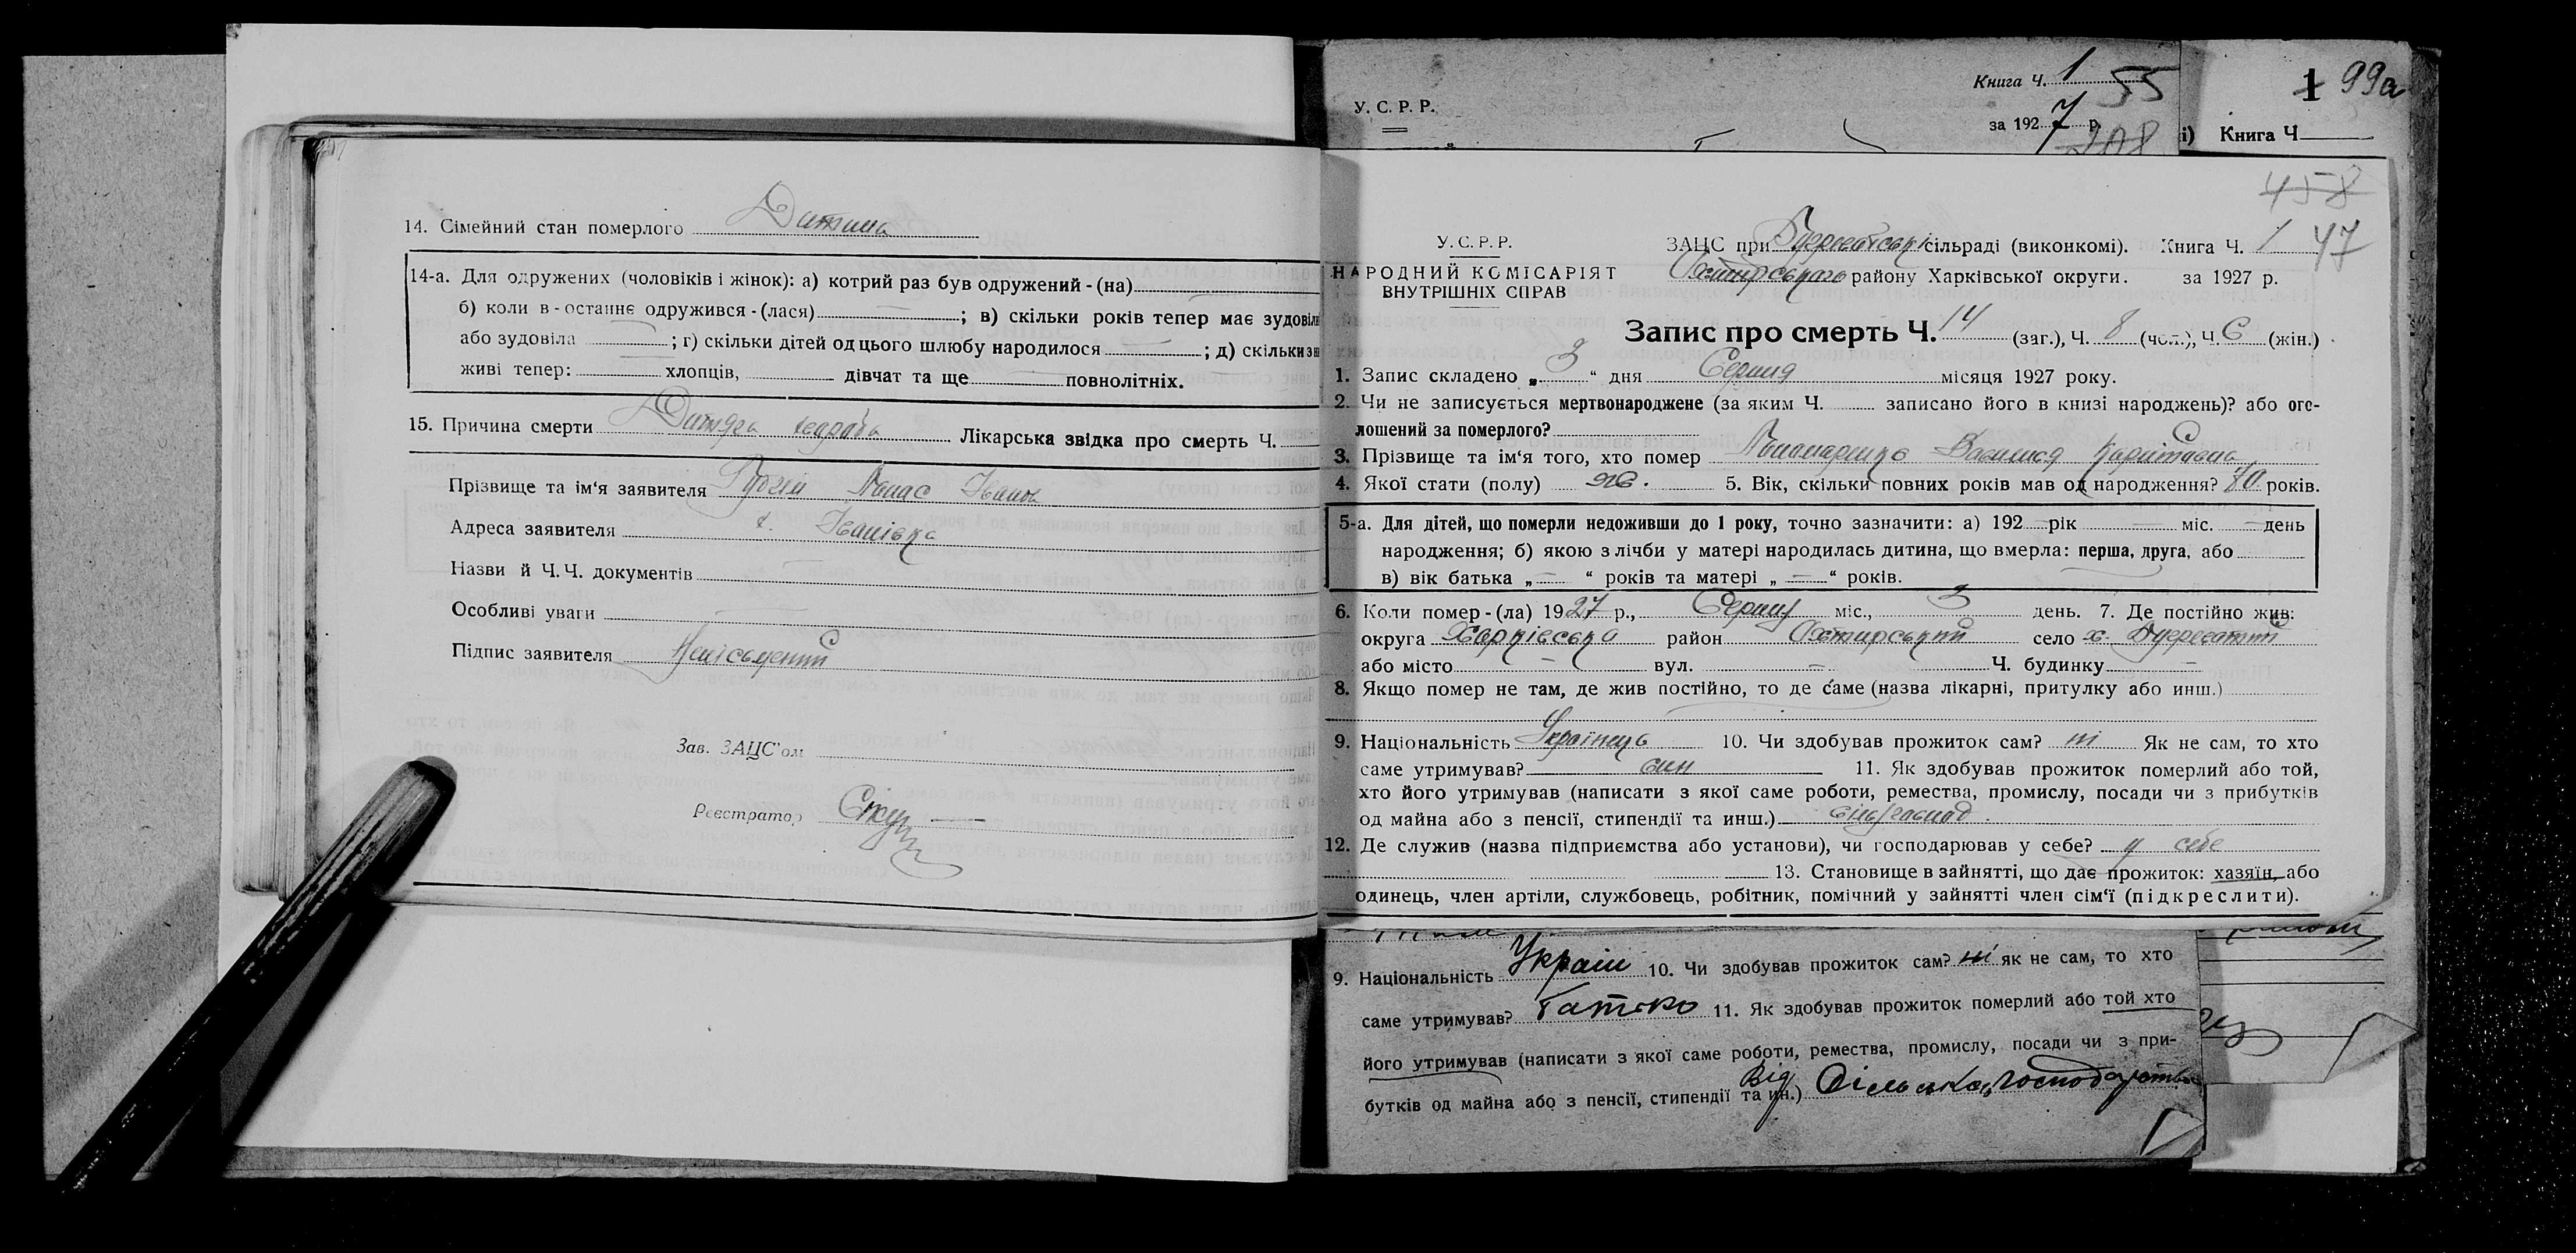 14. Сімейний стан померлого Дитина
14-а. Для одружених (чоловіків і жінок): а) котрий раз був одружений - (на)
б) коли в - останнє одружився - (лася) ; в) скільки років тепер має зудовіли
або зудовіла ; г) скільки дітей од цього шлюбу народилося ; д) скільки з н
живі тепер: хлопців, дівчат та ще повнолітніх.
15. Причина смерти Дитяча хороба Лікарська звідка про смерть Ч.
Прізвище та ім'я заявителя Панас Іванов
Адреса заявителя х. Іванівка
Назви й Ч. Ч. документів
Особливі уваги
Підпис заявителя Неписьменний
Зав. ЗАЦС'ом
Реєстратор
Книга Ч. 1 55
У. С. Р. Р.
за 1927 р.
208
1 99а
і) Книга Ч
458
У. С. Р. Р. ЗАЦС при сільраді (виконкомі). Книга Ч. 1 47
НАРОДНИЙ КОМІСАРІЯТ Охтирського району Харківської округи. за 1927 р.
ВНУТРІШНІХ СПРАВ
Запис про смерть Ч. 14 (заг.), Ч. 8 (чол.), Ч. 6 (жін.)
1. Запис складено „ 3 “ дня Серпня місяця 1927 року.
2. Чи не записується мертвонароджене (за яким Ч. записано його в книзі народжень)? або ого-
лошений за померлого?
3. Прізвище та ім'я того, хто помер Пономаренко
4. Якої стати (полу) жін. 5. Вік, скільки повних років мав од народження? 80 років.
5-а. Для дітей, що померли недоживши до 1 року, точно зазначити: а) 192 — рік — міс. — день
народження; б) якою з лічби у матері народилась дитина, що вмерла: перша, друга, або
в) вік батька „ — “ років та матері „ — “ років.
6. Коли помер - (ла) 1927 р., Серпня міс., 3 день. 7. Де постійно жив:
округа Харківська район Охтирський село х.
або місто — вул. — Ч. будинку —
8. Якщо помер не там, де жив постійно, то де саме (назва лікарні, притулку або инш.)
9. Національність Українець 10. Чи здобував прожиток сам? ні Як не сам, то хто
саме утримував? син 11. Як здобував прожиток померлий або той,
хто його утримував (написати з якої саме роботи, ремества, промислу, посади чи з прибутків
од майна або з пенсії, стипендії та инш.)
12. Де служив (назва підприємства або установи), чи господарював у себе? у себе
13. Становище в зайнятті, що дає прожиток: хазяїн, або
одинець, член артіли, службовець, робітник, помічний у зайнятті член сім'ї (підкреслити).
9. Національність Україн 10. Чи здобував прожиток сам? ні як не сам, то хто
саме утримував? батько 11. Як здобував прожиток померлий або той хто
його утримував (написати з якої саме роботи, ремества, промислу, посади чи з при-
Від
бутків од майна або з пенсії, стипендії та ин.) Сільська господарства